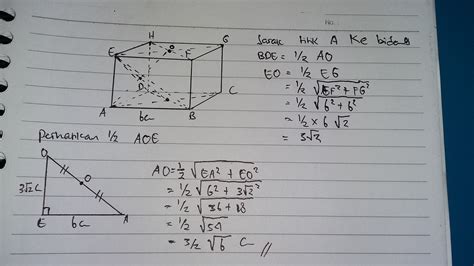 No:
H
G
E
F
O
D
C
A
B
6c
Jarak titik A Ke bidang
BDE = 1/2 AO
EO = 1/2 EG
= 1/2 √EF² + FG²
= 1/2 √6² + 6²
= 1/2 x 6 √2
= 3√2
Perhatikan 1/2 AOE
O
O
3√2 C
E
6c
A
AO = 1/2 √EA² + EO²
= 1/2 √6² + 3√2²
= 1/2 √36 + 18
= 1/2 √54
= 3/2 √6 C //